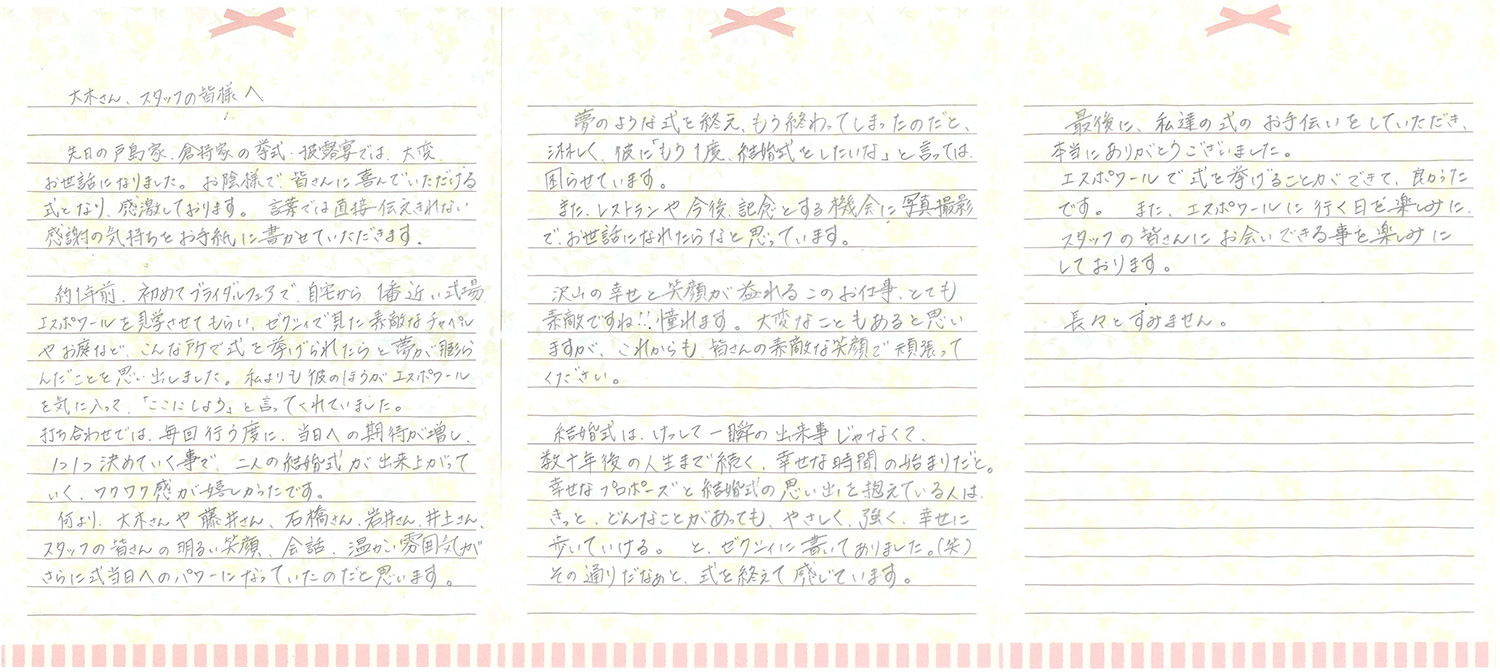 大木さん、スタッフの皆様へ
先日の戸島家、倉持家の挙式・披露宴では、大変
お世話になりました。お陰様で、皆さんに喜んでいただける
式となり、感激しております。言葉では直接伝えきれない
感謝の気持ちをお手紙に書かせていただきます。
約1年前、初めてブライダルフェアで、自宅から1番近い式場
エスポワールを見学させてもらい、ゼクシィで見た素敵なチャペル
やお庭など、こんな所で式を挙げられたらと夢が膨ら
んだことを思い出しました。私よりも彼のほうがエスポワール
を気に入って、「ここにしよう」と言ってくれていました。
打ち合わせでは、毎回行う度に、当日への期待が増し、
1つ1つ決めていく事で、二人の結婚式が出来上がって
いく、ワクワク感が嬉しかったです。
何より、大木さんや藤井さん、石橋さん、岩井さん、井上さん、
スタッフの皆さんの明るい笑顔、会話、温かい雰囲気が
さらに式当日へのパワーになっていたのだと思います。
夢のような式を終え、もう終わってしまったのだと、
淋しく、彼に「もう1度、結婚式をしたいな」と言っては、
困らせています。
また、レストランや今後、記念とする機会に写真撮影
で、お世話になれたらなと思っています。
沢山の幸せと笑顔が溢れるこのお仕事、とても
素敵ですね!!憧れます。大変なこともあると思い
ますが、これからも、皆さんの素敵な笑顔で頑張って
ください。
結婚式は、けっして一瞬の出来事じゃなくて、
数十年後の人生まで続く、幸せな時間の始まりだと。
幸せなプロポーズと結婚式の思い出を抱えている人は、
きっと、どんなことがあっても、やさしく、強く、幸せに
歩いていける。と、ゼクシィに書いてありました。(笑)
その通りだなぁと、式を終えて感じています。
最後に、私達の式のお手伝いをしていただき、
本当にありがとうございました。
エスポワールで式を挙げることができて、良かった
です。また、エスポワールに行く日を楽しみに、
スタッフの皆さんにお会いできる事を楽しみに
しております。
長々とすみません。